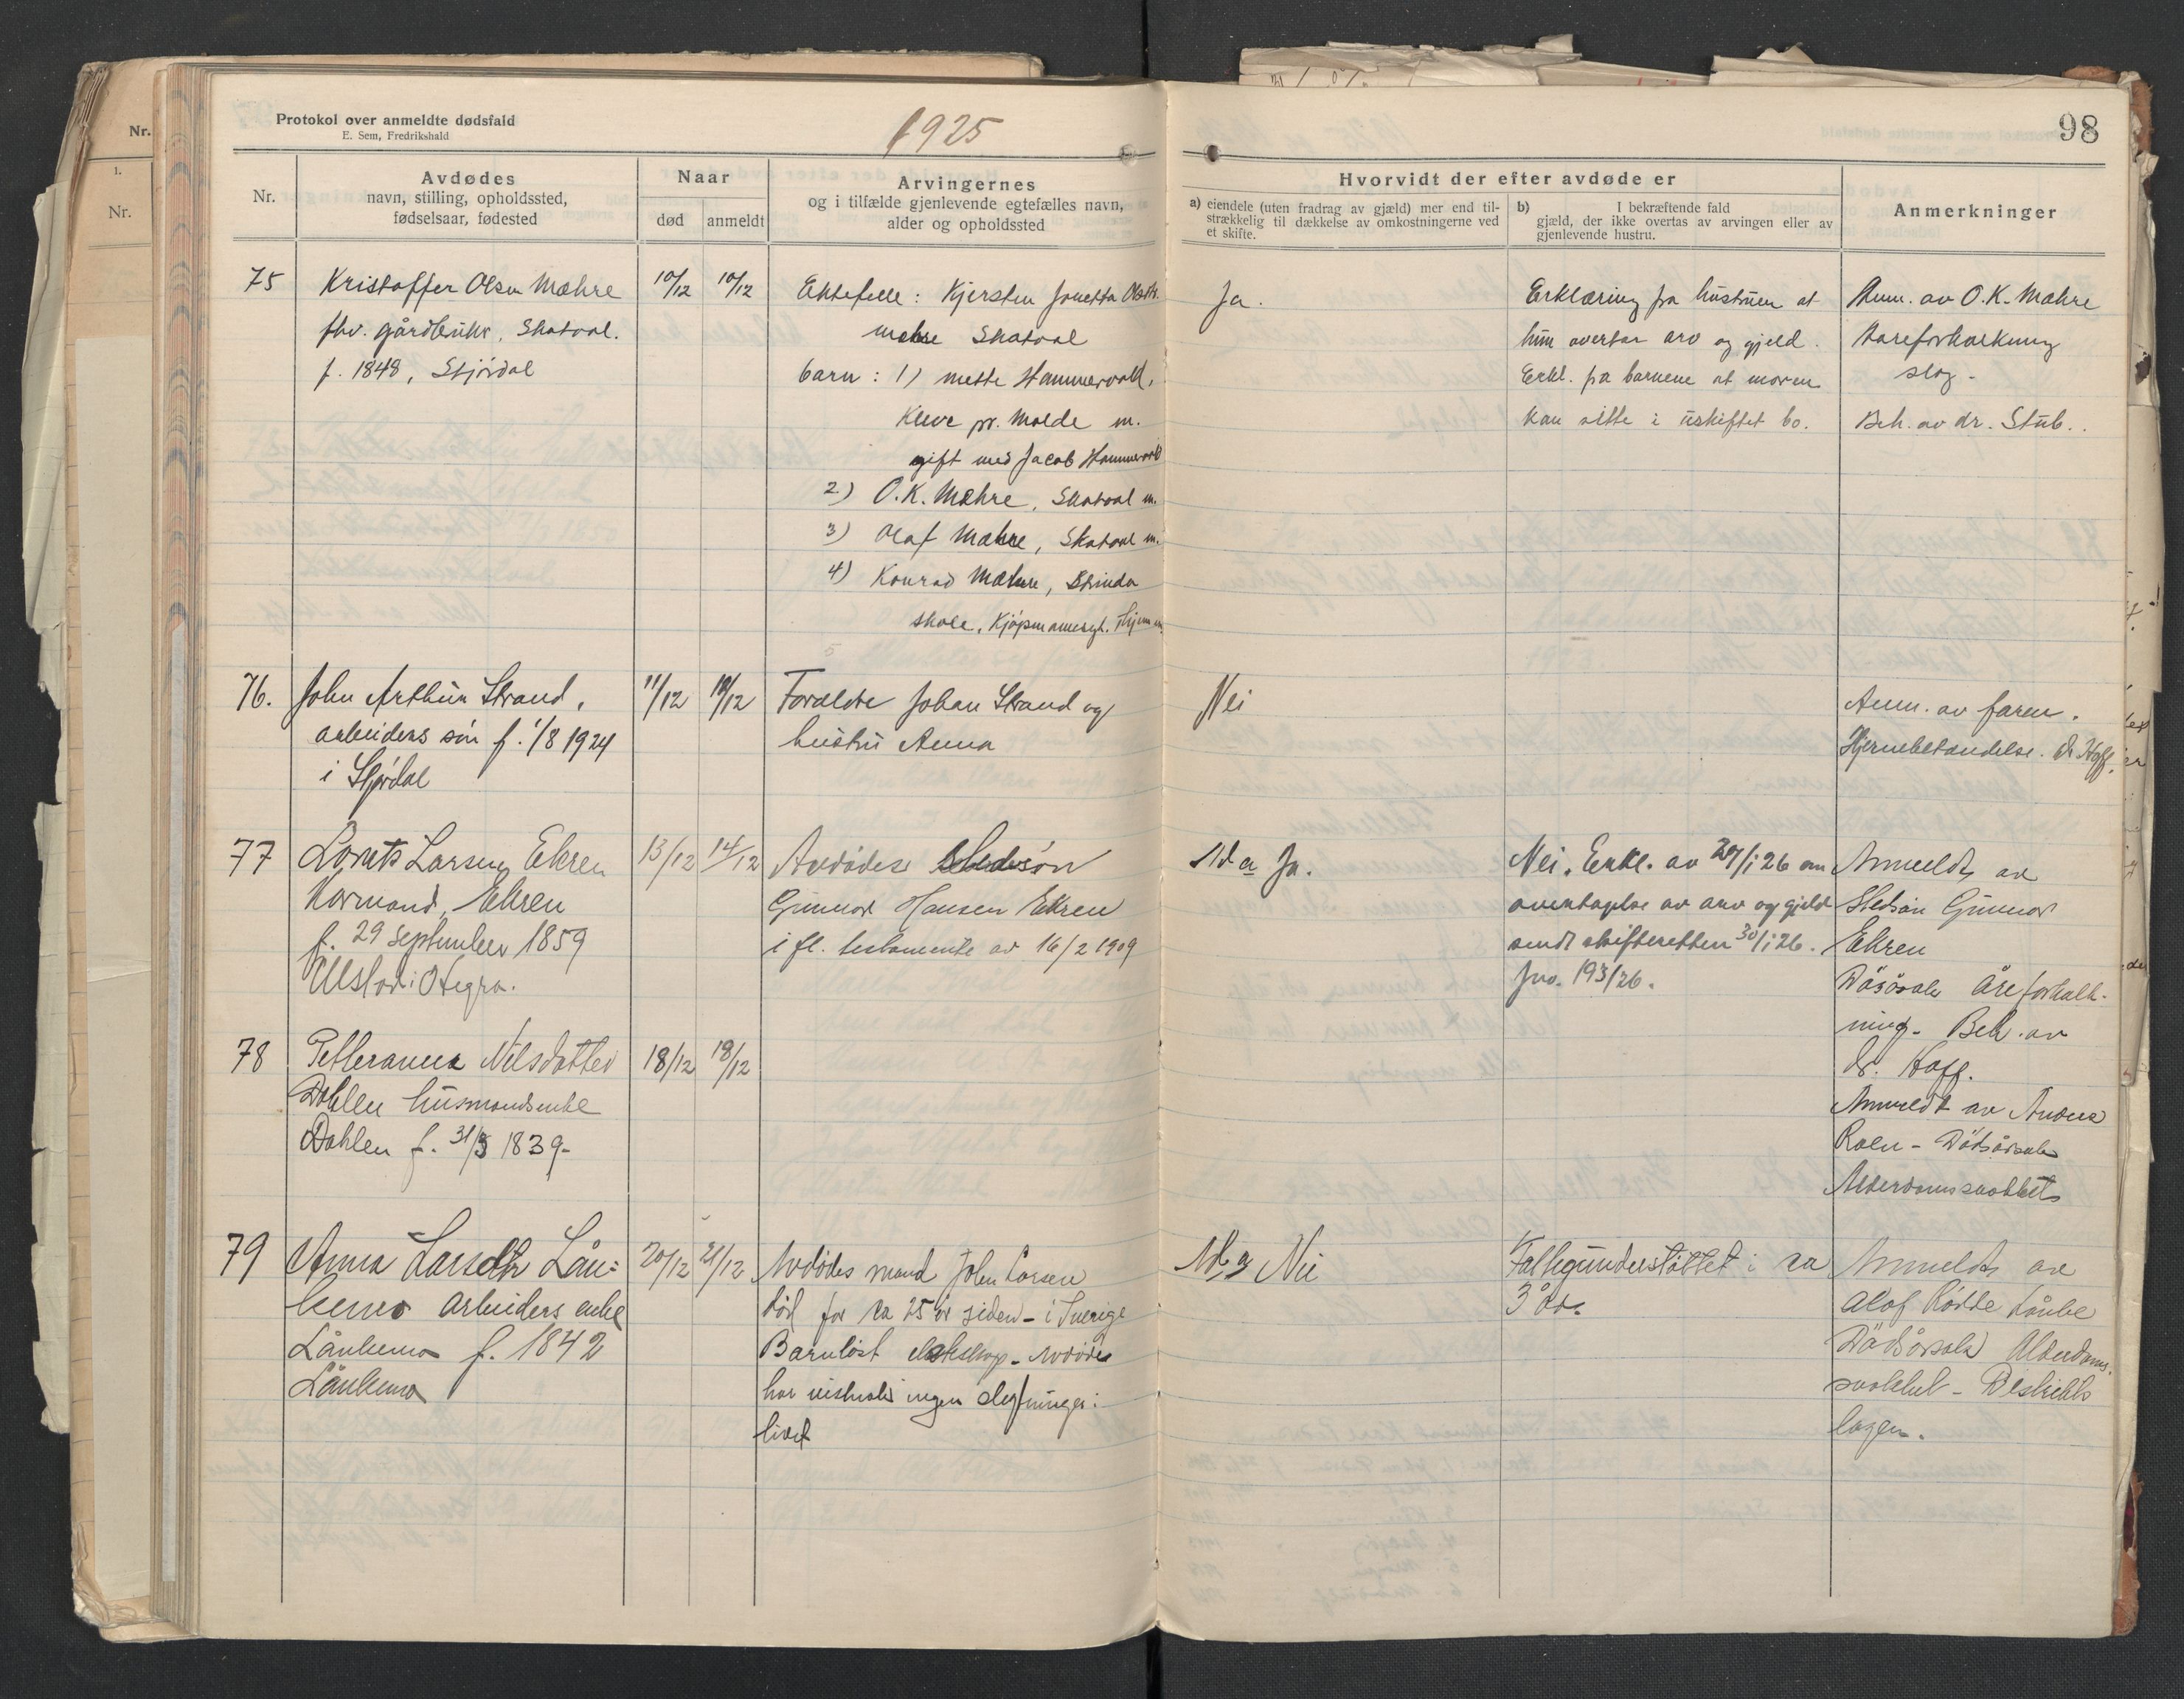 Protokol over anmeldte dødsfald
E. Sem, Fredrikshald
1925
98
Nr.
1.
Nr.
Nr.
Avdødes
navn, stilling, opholdssted,
fødselsaar, fødested
Naar
død
anmeldt
Arvingernes
og i tilfælde gjenlevende egtefælles navn,
alder og opholdssted
Hvorvidt der efter avdøde er
a) eiendele (uten fradrag av gjæld) mer end til-
strækkelig til dækkelse av omkostningerne ved
et skifte.
b) I bekræftende fald
gjæld, der ikke overtas av arvingen eller av
gjenlevende hustru.
Anmerkninger
75
Kristoffer Olsen Mæhre
fhv. gårdbruker, Skatval.
f. 1848, Stjördal
10/12
10/12
Ektefelle: Kjersten Jonetta Olsdtr.
Mæhre Skatval
barn: 1) Mette Hammervold,
Kleve pr. Molde m.
gift med Jacob Hammervold
2) O.K. Mæhre, Skatval m.
3) Olaf Mæhre, Skatval m.
4) Konrad Mæhre, Strinda
skole, Kjøpmannsgt. Thjem m.
Ja.
Erklæring fra hustruen at
hun overtar arv og gjeld.
Erkl. fra barnene at moren
kan sitte i uskiftet bo.
Anm. av O.K. Mæhre
Aareforkalkning
slag -
Beh. av dr. Stub.
76.
John Arthur Strand,
arbeiders sön f. 1/8 1924
i Stjördal
11/12
12/12
Forældre Johan Strand og
hustru Anna
Nei
Anm. av faren.
Hjernebetændelse. dr Hoff.
77
Lorents Larsen Ekren
Kårmand, Ekren
f. 29 september 1859
Ulstad i Hegra.
13/12
14/12
Avdödes stedsön
Gunnar Hansen Ekren
i fl. testamente av 16/2 1909
Ad a Ja.
Nei. Erkl. av 29/1 26 om
overtagelse av arv og gjeld
sendt skifteretten 30/1 26.
Jno. 193/26.
Anmeldt av
Stedsön Gunnar
Ekren
Dödsårsak Åreforkalk-
ning - Beh. av
dr. Hoff.
78
Petteranna Nilsdatter
Dahlen husmandsenke
Dahlen f. 31/3 1839-
18/12
19/12
Anmeldt av Anders
Roen - Dödsårsak
Alderdomssvakhet
79
Anna Larsdtr Lån=
kemo arbeiders enke
Lånkemo f. 1842
Lånkemo
20/12
21/12
Avdödes mand John Larsen
död for ca 25 år siden - i Sverige
Barnlöst ekteskap - Avdöde
har visstnok ingen slegtninger i
livet
Ad a Nei
Fattigunderstöttet i ca
3 år.
Anmeldt av
Olof Rödde Lånke
Dödsårsak Alderdoms-
svakhet - Distrikts
lægen.